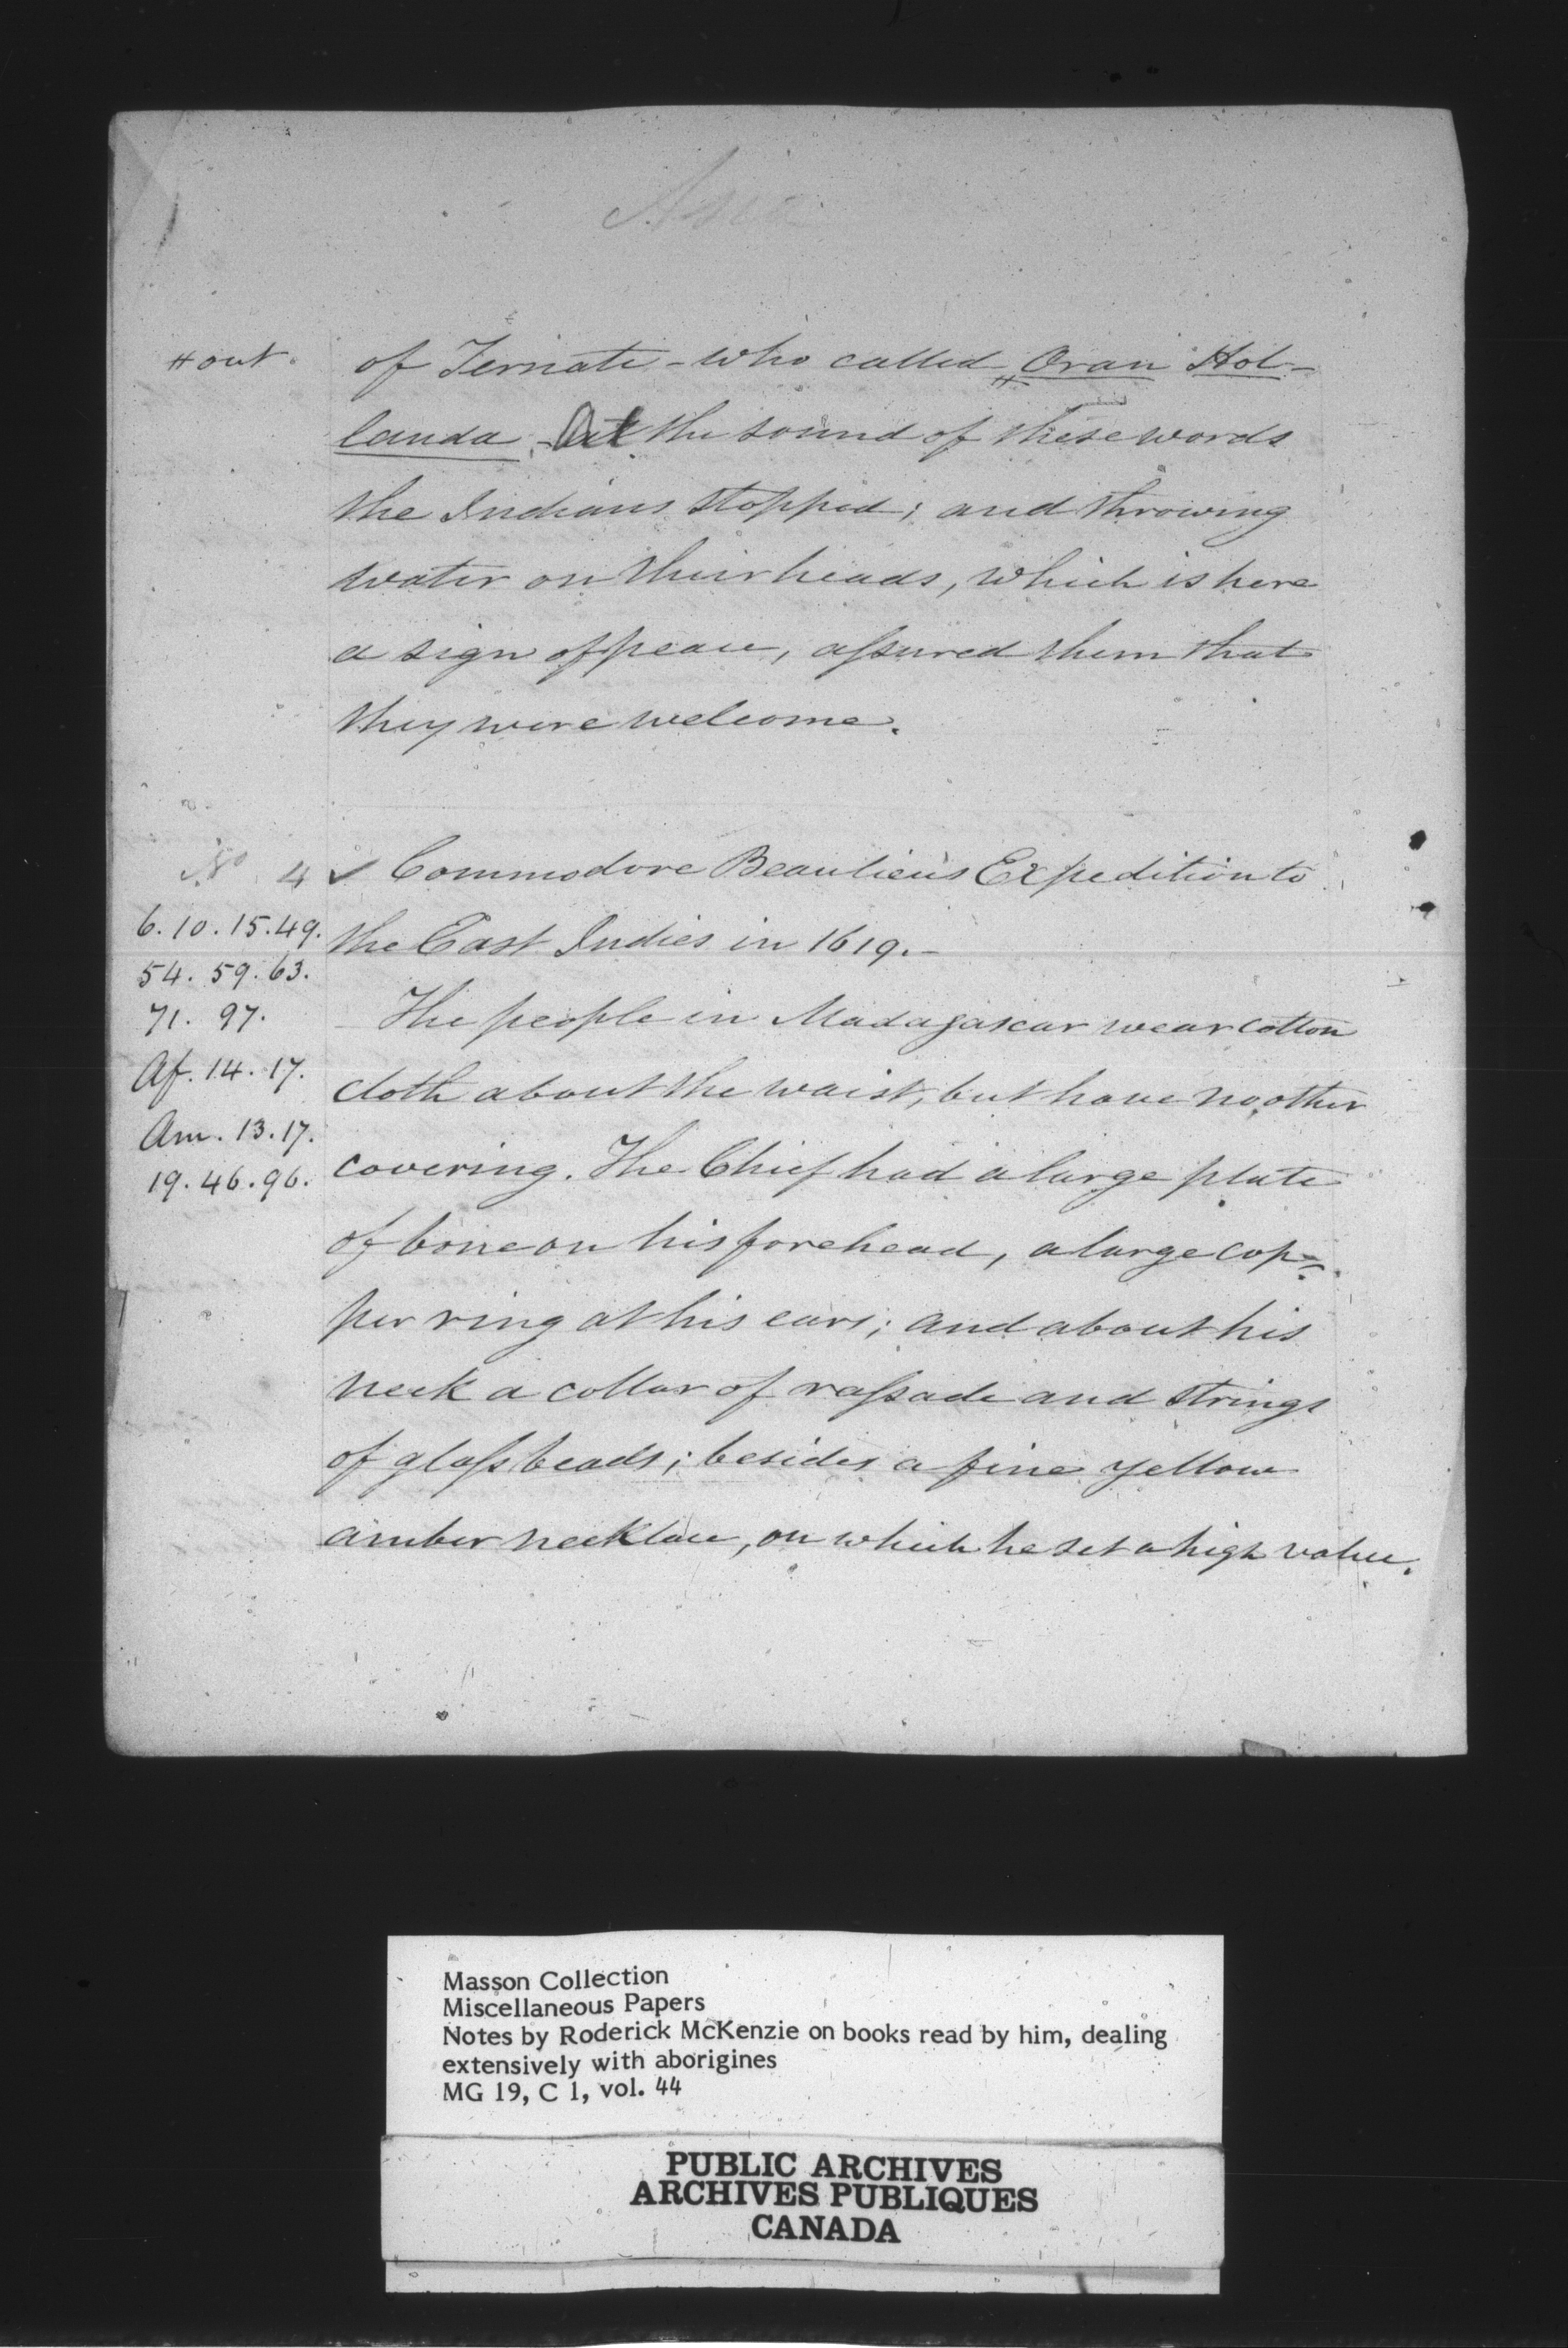 Asia
# out. of Ternate - who called # Oran Hol-
landa, At the sound of these words
the Indians stopped; and throwing
water on their heads, which is here
a sign of peace, assured them that
they were welcome.
No 4 ✓ Commodore Beaulieu's Expedition to
6. 10. 15. 49. the East Indies in 1619.-
54. 59. 63.
71. 97. The people in Madagascar wear cotton
Af. 14. 17. cloth about the waist, but have no other
Am. 13. 17.
19. 46. 96. covering. The Chief had a large plate
of bone on his forehead, a large cop=
per ring at his ears; and about his
neck a collar of rassade and strings
of glass beads; besides a fine yellow
amber necklace, on which he set a high value.
Masson Collection
Miscellaneous Papers
Notes by Roderick McKenzie on books read by him, dealing
extensively with aborigines
MG 19, C 1, vol. 44
PUBLIC ARCHIVES
ARCHIVES PUBLIQUES
CANADA